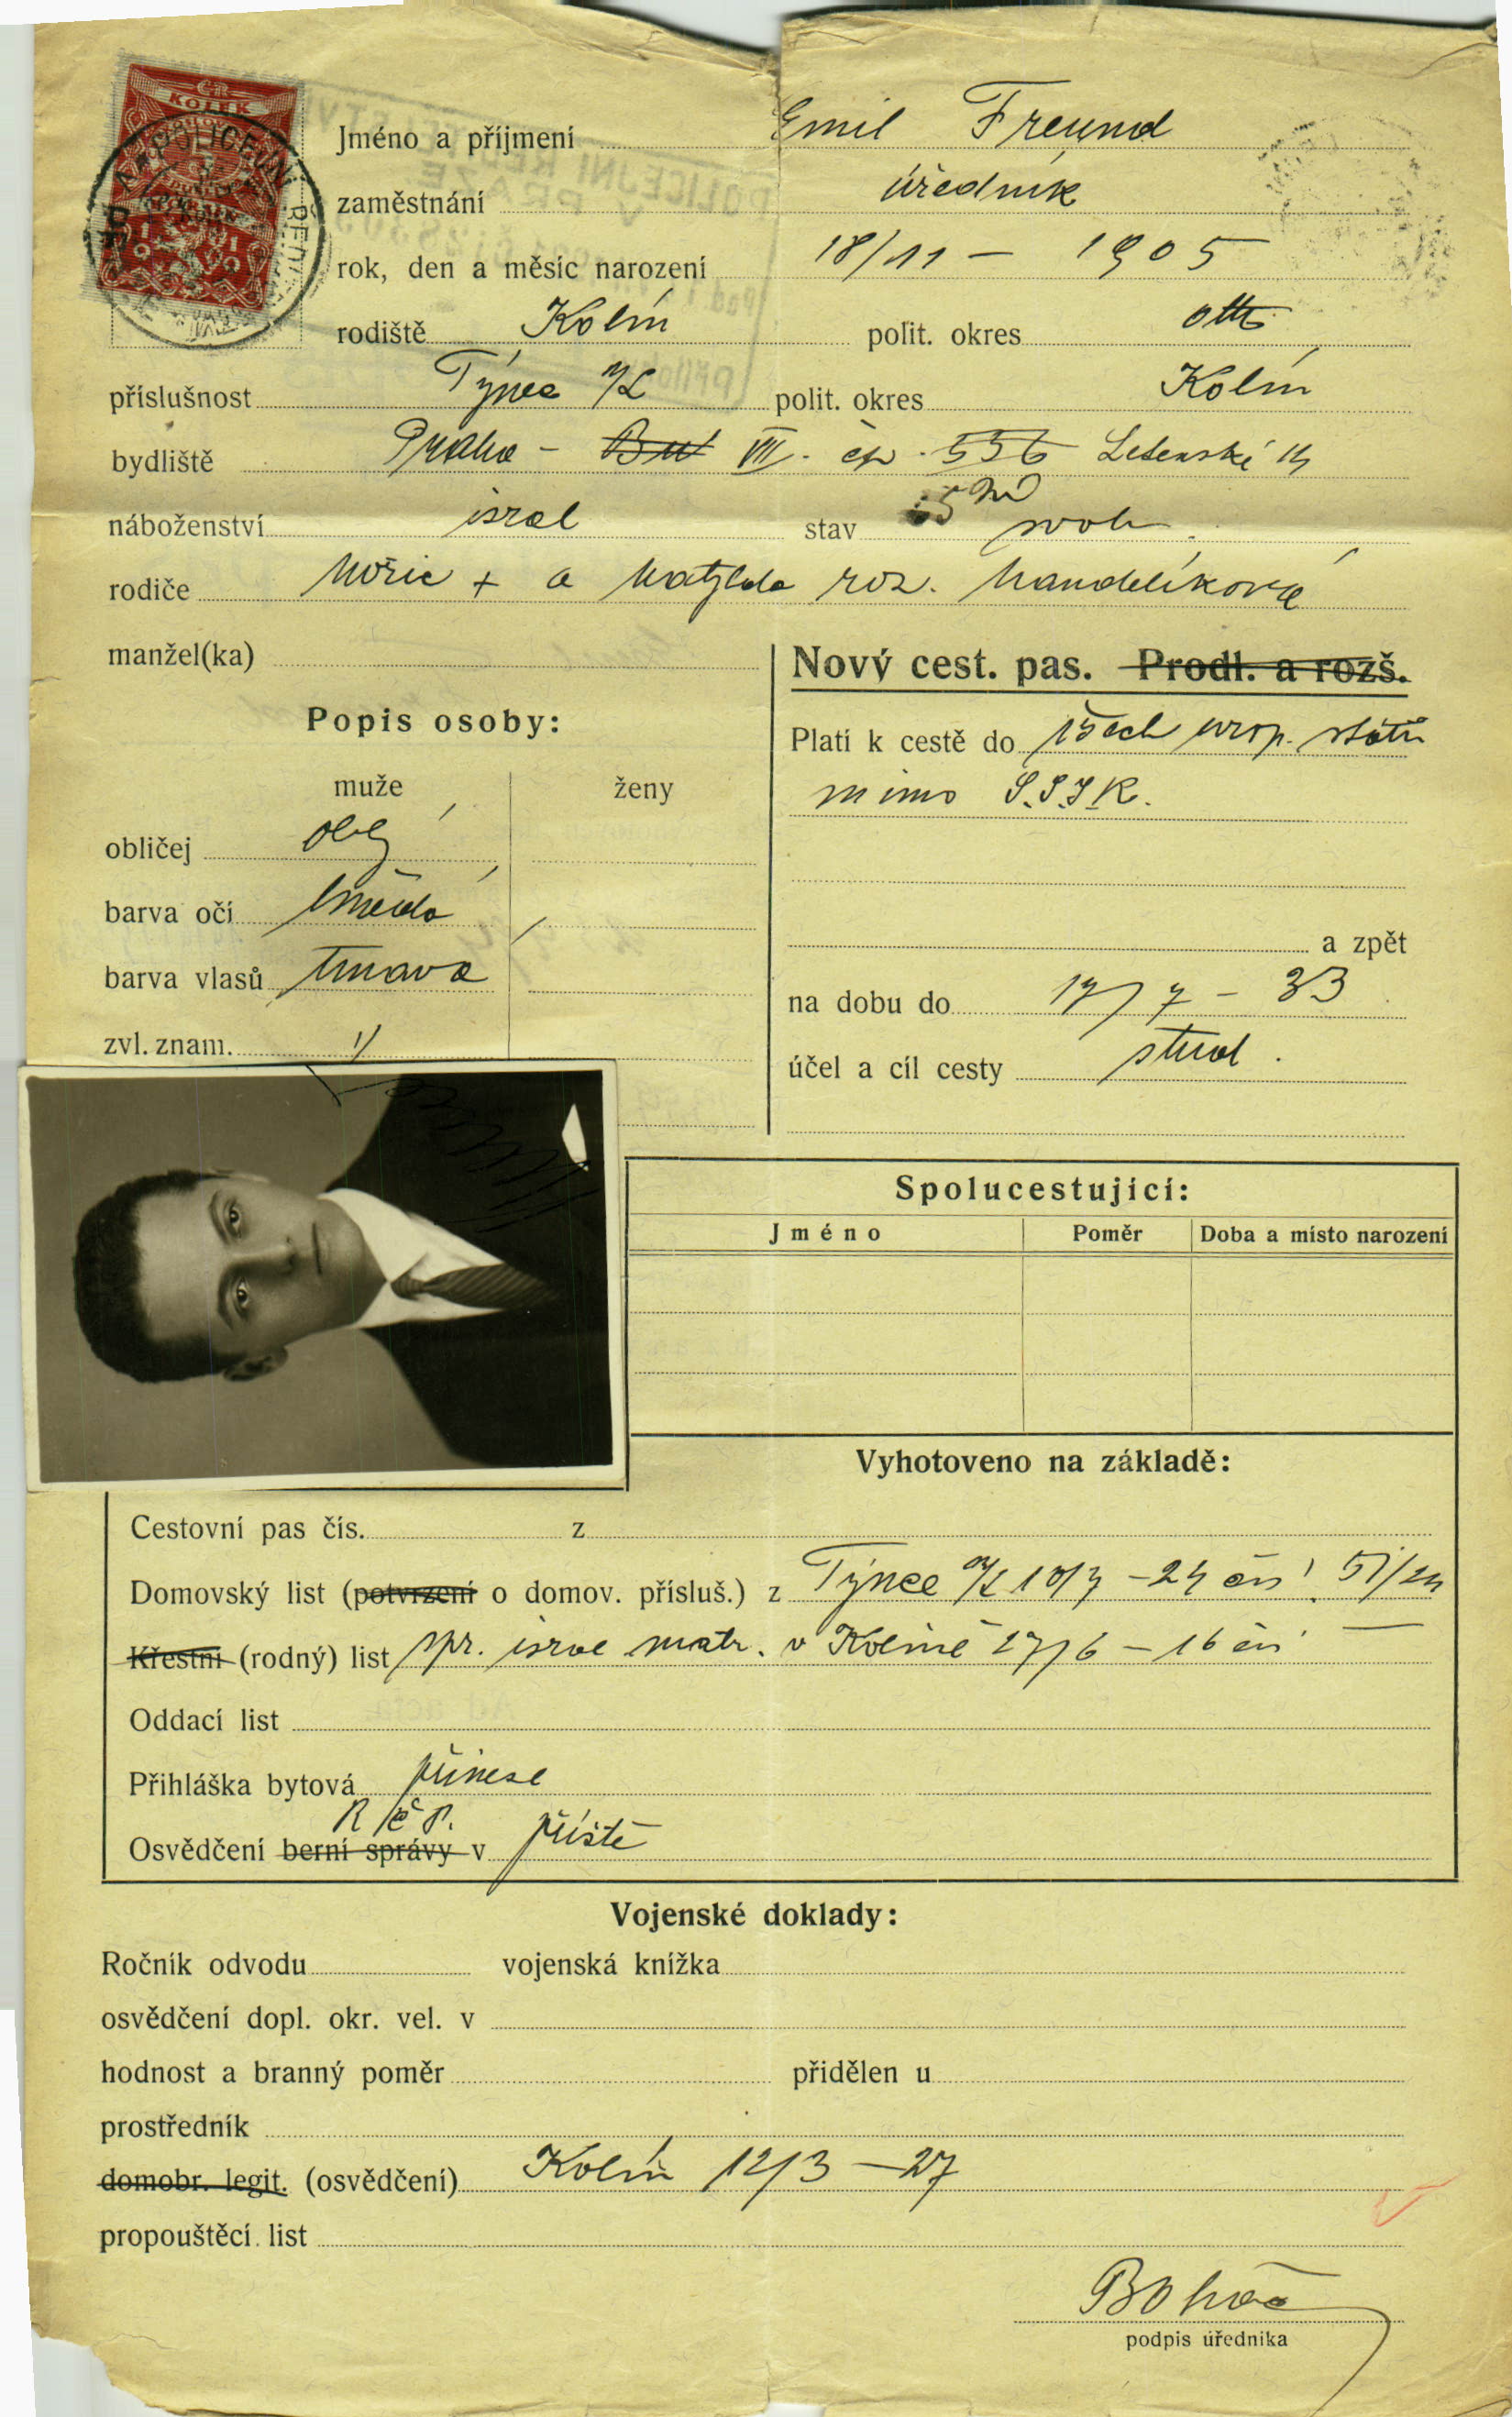 ČR
KOLEK
Jméno a příjmení Emil Freund
zaměstnání úředník
rok, den a měsíc narození 18/11 – 1905
rodiště Kolín polit. okres
příslušnost Týnec n/L polit. okres Kolín
bydliště Praha – VII. čp. 556 Letenská
náboženství israel stav svob.
rodiče Mořic + a Matylda roz. Mandelíková
manžel(ka)
Nový cest. pas. Prodl. a rozš.
Popis osoby:
muže ženy
obličej oblý
barva očí hnědá
barva vlasů tmavá
zvl. znam.
Platí k cestě do všech evrop. států
mimo S.S.S.R.
a zpět
na dobu do 17/7 – 33
účel a cíl cesty stud.
Spolucestující:
Jméno Poměr Doba a místo narození
Vyhotoveno na základě:
Cestovní pas čís. z
Domovský list (potvrzení o domov. přísluš.) z Týnec n/L 10/7 – 24 čís. 51/24
Křestní (rodný) list spr. israel matr. v Kolíně 27/6 – 16 čís –
Oddací list
Přihláška bytová přinese
R Č P.
Osvědčení berní správy v příště
Vojenské doklady:
Ročník odvodu vojenská knížka
osvědčení dopl. okr. vel. v
hodnost a branný poměr přidělen u
prostředník
domobr. legit. (osvědčení) Kolín 12/3 – 27
propouštěcí list
Boháč
podpis úředníka